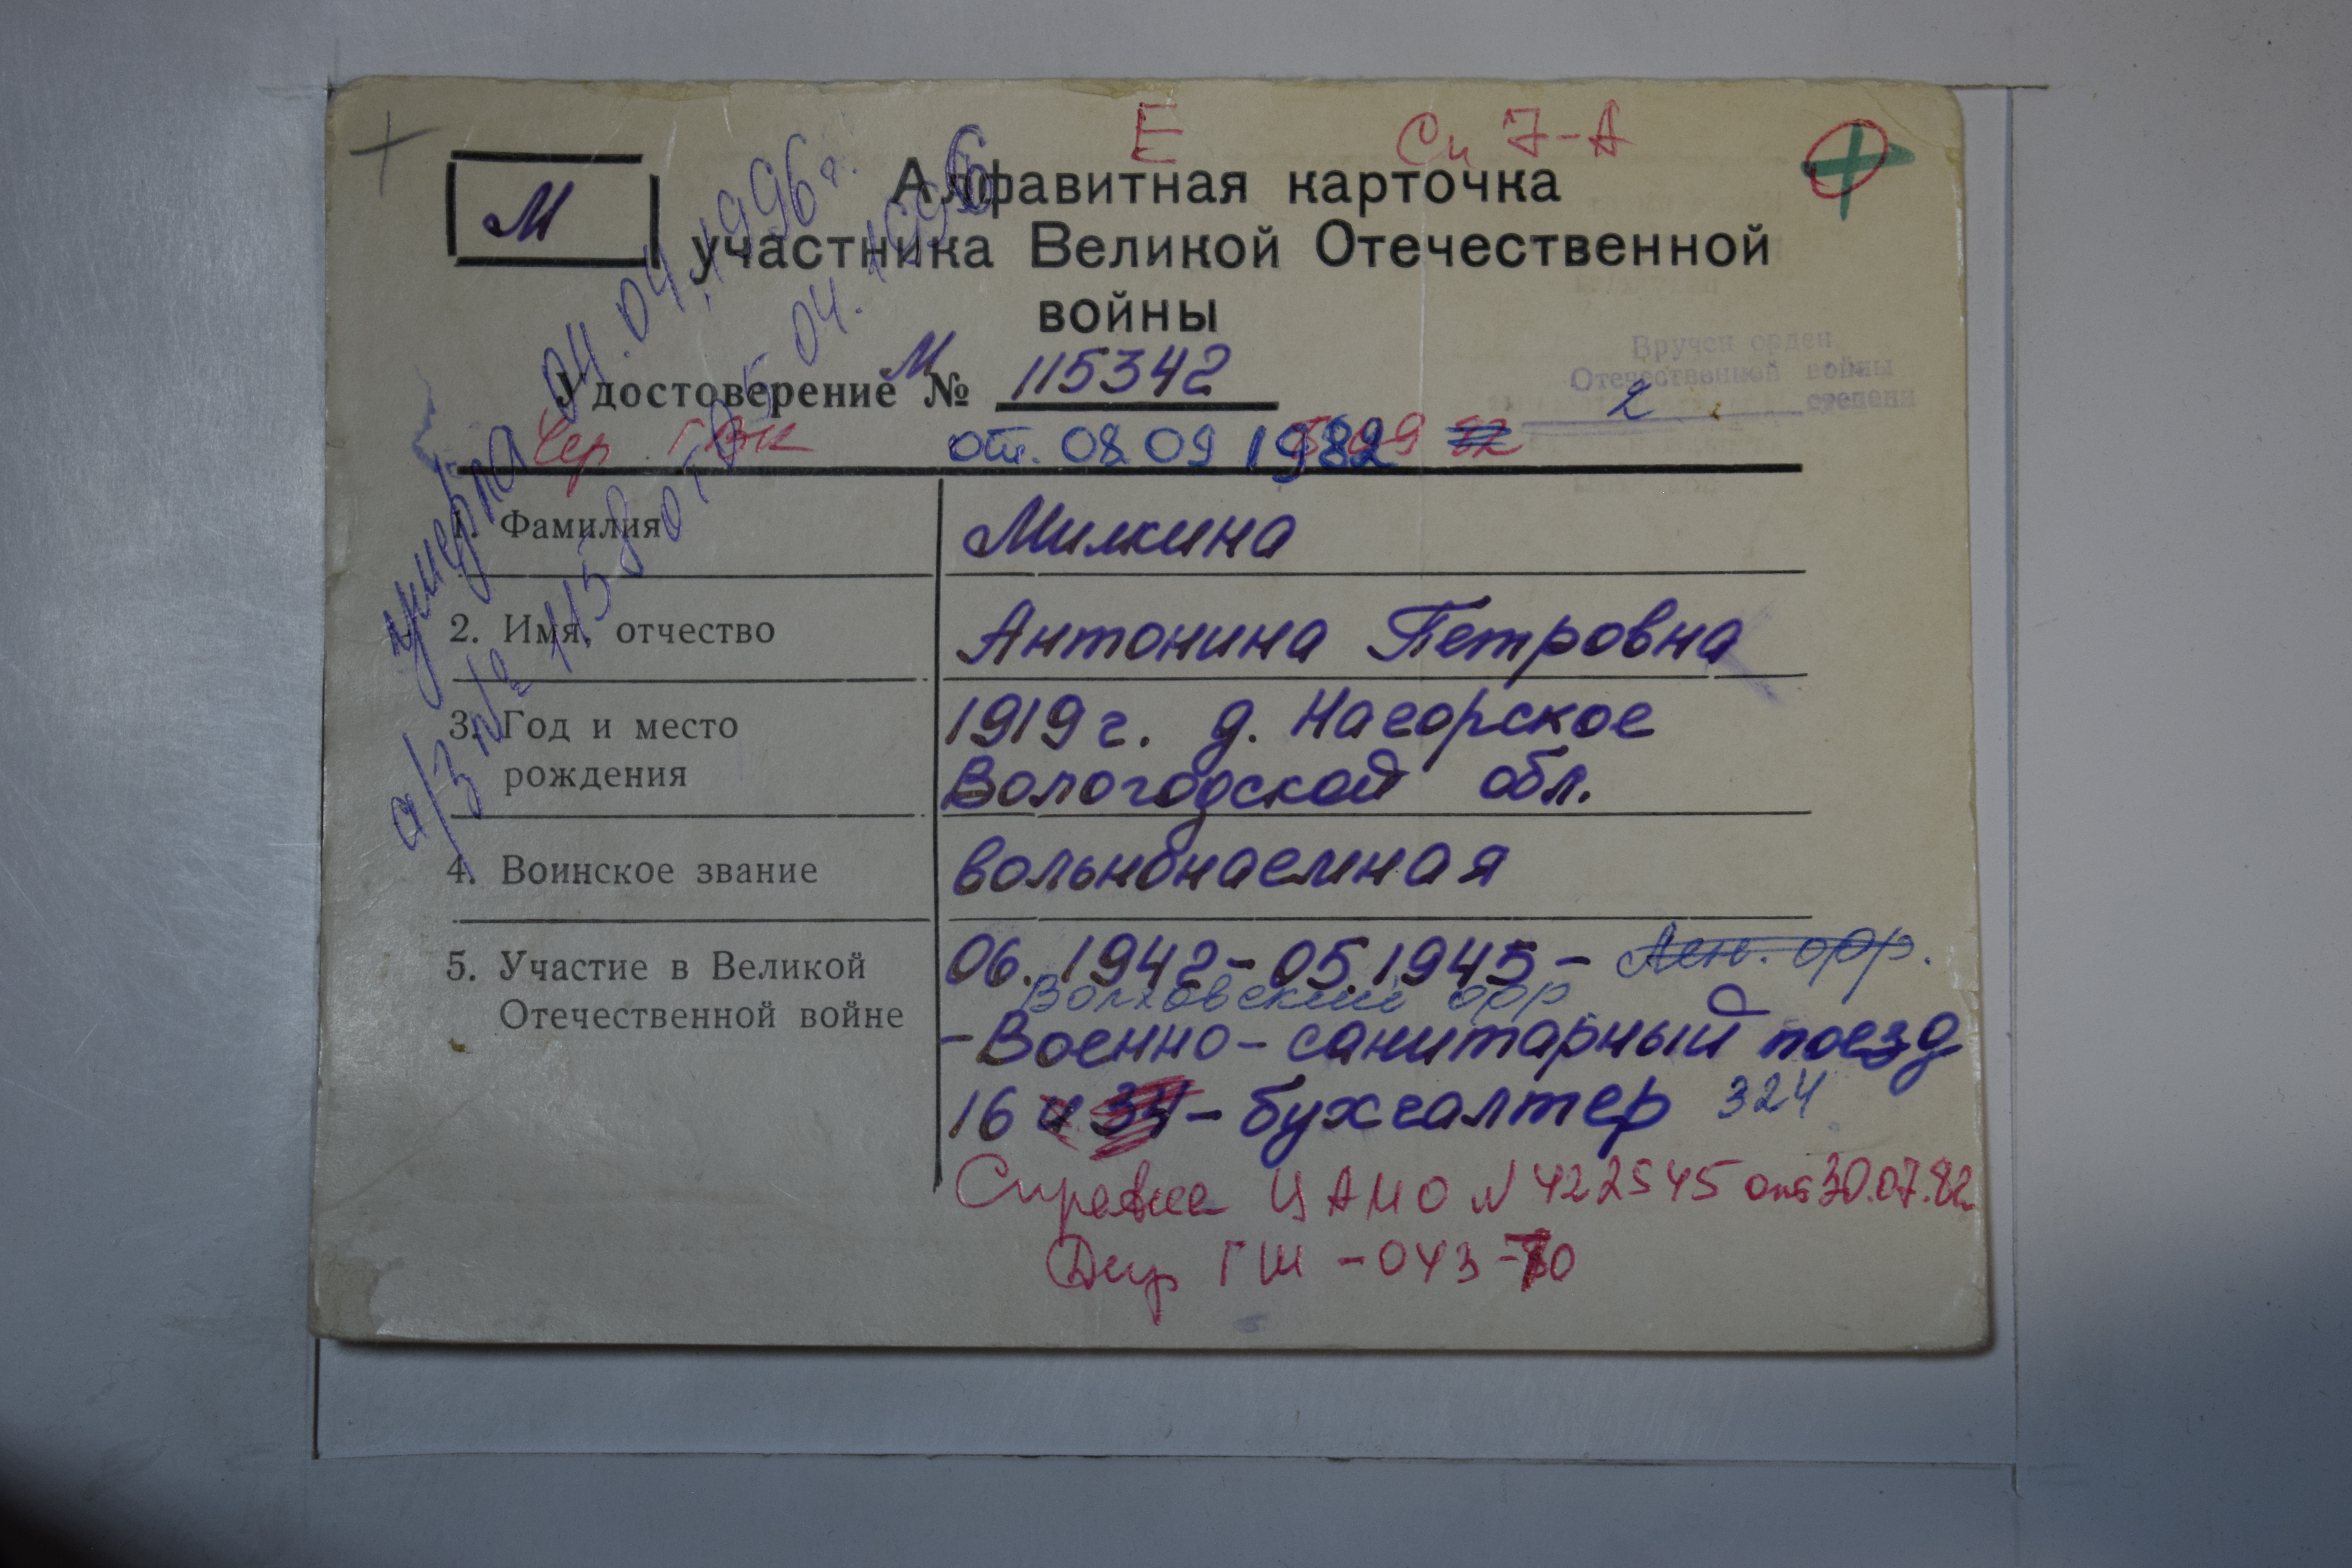 Е Сп 7-А
М
Алфавитная карточка
участника Великой Отечественной
войны
Удостоверение М № 115342
Вручен орден
Отечественной войны
2 степени
от. 08 09 1982
1. Фамилия Милкина
2. Имя, отчество Антонина Петровна
3. Год и место рождения 1919 г. д. Нагорское
Вологодской обл.
4. Воинское звание вольнонаемная
5. Участие в Великой Отечественной войне 06.1942-05.1945- Лен. фр.
Волховский фр
-Военно-санитарный поезд
16 и 34 - бухгалтер 324
Справка ЦАМО N 422545 от 30.07.82
Дир ГШ -043-70
умерла 04.04.1996 г.
а/з № 1158 от 5 04.1996